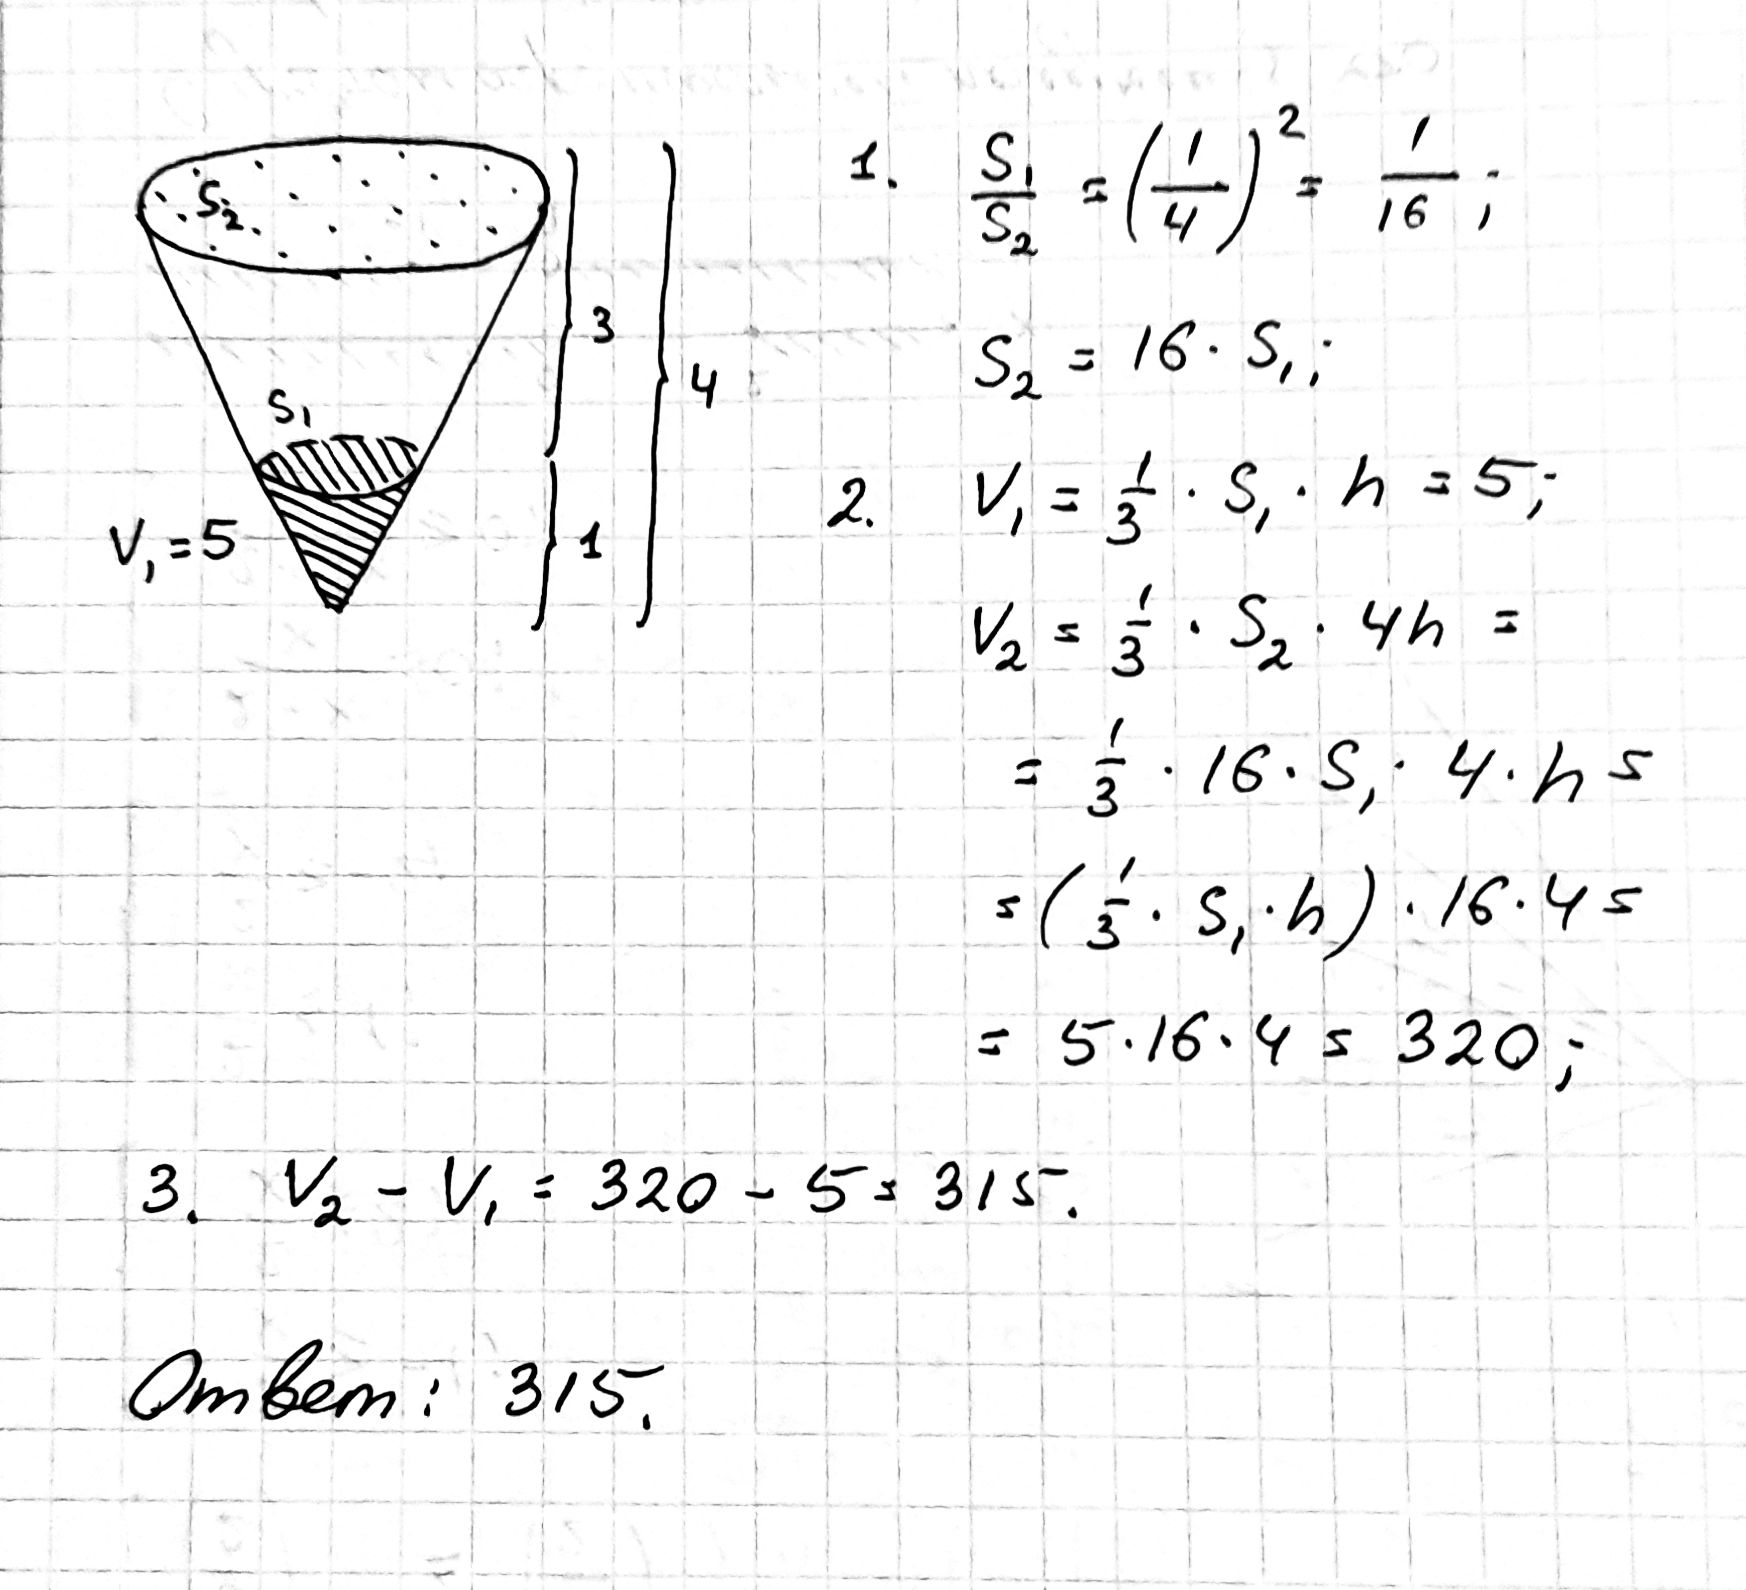 S₂
3
4
S₁
V₁ = 5
1
1. S₁/S₂ = (1/4)² = 1/16 ;
S₂ = 16 · S₁ ;
2. V₁ = 1/3 · S₁ · h = 5 ;
V₂ = 1/3 · S₂ · 4h =
= 1/3 · 16 · S₁ · 4 · h =
= (1/3 · S₁ · h) · 16 · 4 =
= 5 · 16 · 4 = 320 ;
3. V₂ - V₁ = 320 - 5 = 315.
Ответ: 315.